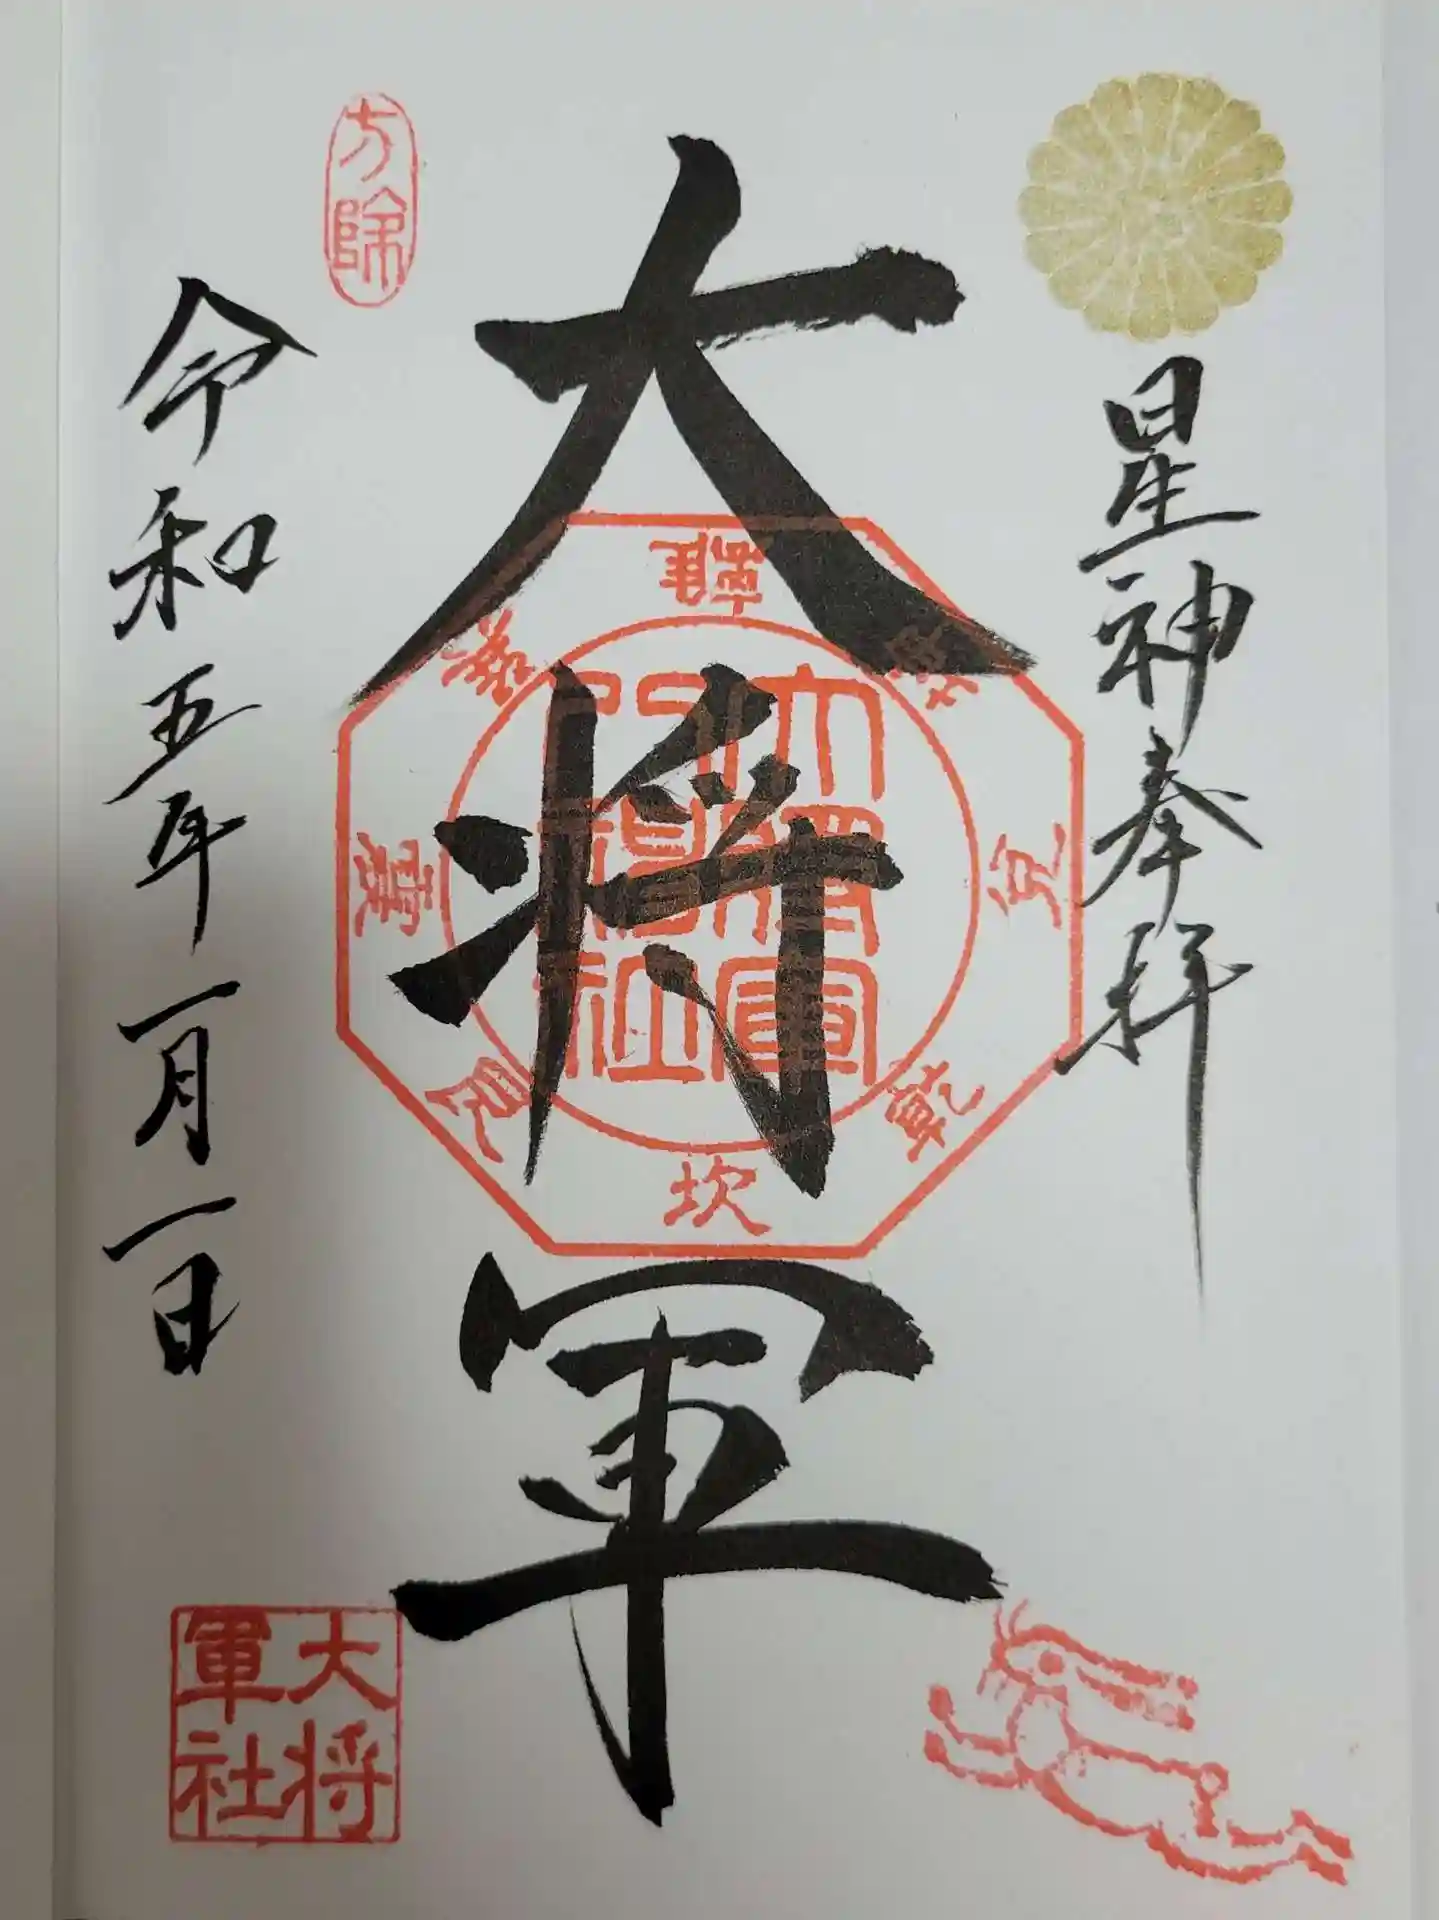 星神奉拝
大将軍
坎
乾
兌
艮
大将軍社
方除
令和五年一月一日
大将軍社